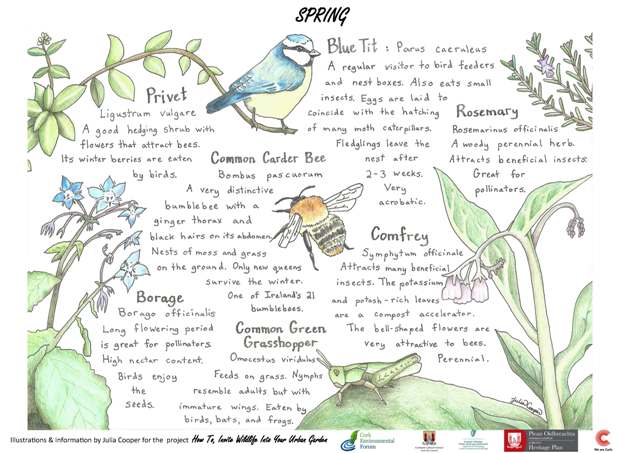 SPRING
Blue Tit : Parus caeruleus
A regular visitor to bird feeders
and nest boxes. Also eats small
insects. Eggs are laid to
coincide with the hatching
of many moth caterpillars.
Fledglings leave the
nest after
2-3 weeks.
Very
acrobatic.
Privet
Ligustrum vulgare
A good hedging shrub with
flowers that attract bees.
Its winter berries are eaten
by birds.
Rosemary
Rosemarinus officinalis
A woody perennial herb.
Attracts beneficial insects.
Great for
pollinators.
Common Carder Bee
Bombus pascuorum
A very distinctive
bumblebee with a
ginger thorax and
black hairs on its abdomen
Nests of moss and grass
on the ground. Only new queens
survive the winter.
One of Ireland's 21
bumblebees.
Comfrey
Symphytum officinale
Attracts many beneficial
insects. The potassium
and potash-rich leaves
are a compost accelerator.
The bell-shaped flowers are
very attractive to bees.
Perennial.
Borage
Borago officinalis
Long flowering period
is great for pollinators.
High nectar content.
Birds enjoy
the
seeds.
Common Green
Grasshopper
Omocestus viridulus
Feeds on grass. Nymphs
resemble adults but with
immature wings. Eaten by
birds, bats, and frogs.
Julia Cooper
Illustrations & Information by Julia Cooper for the project How To, Invite Wildlife Into Your Urban Garden
Cork
Environmental
Forum
Heritage Plan
We are Cork